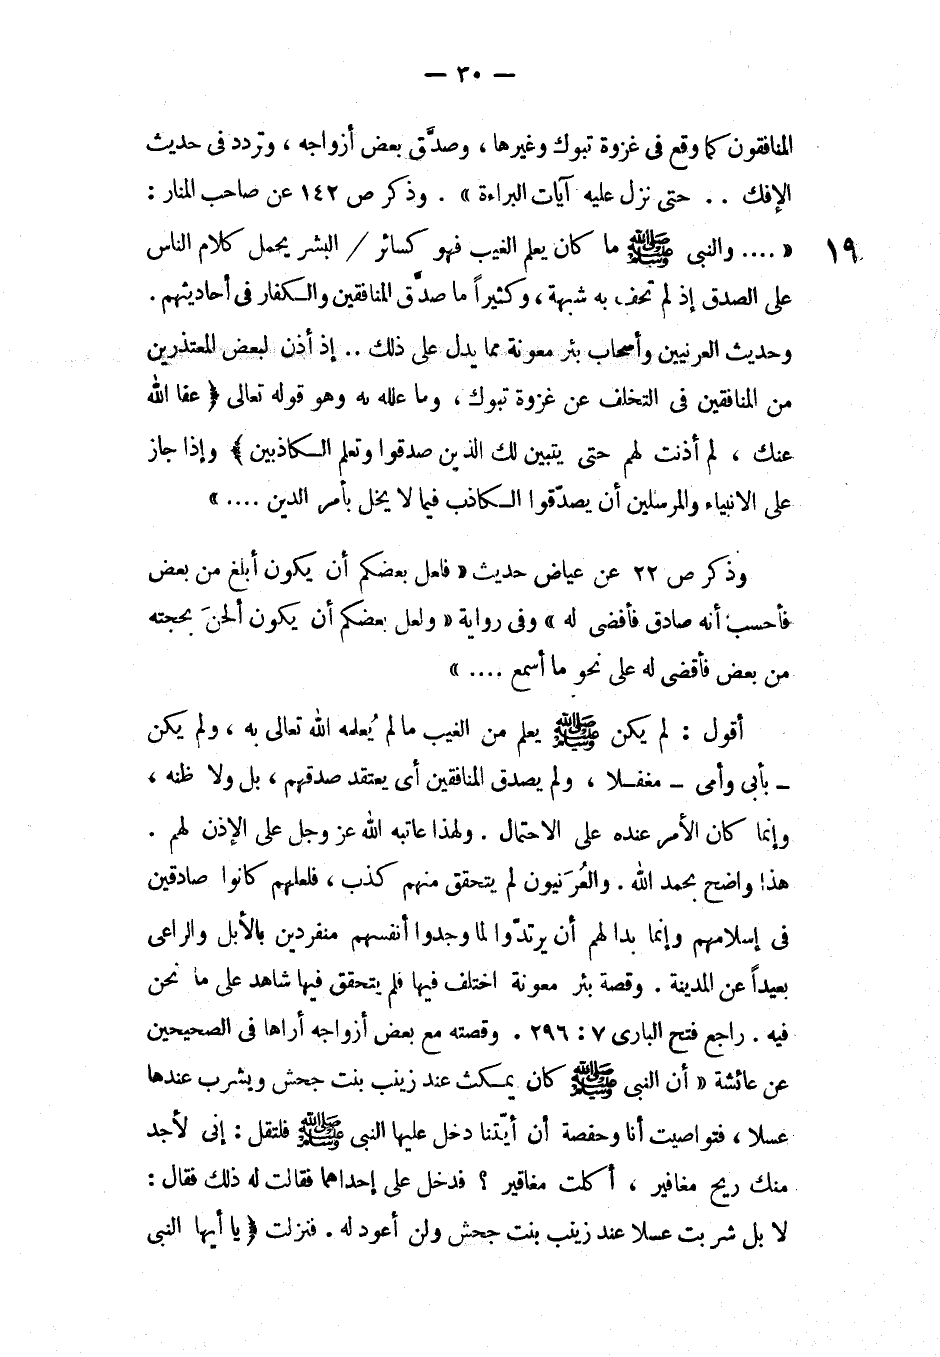 — ٣٠ —
المنافقون كما وقع فى غزوة تبوك وغيرها ، وصدَّق بعض أزواجه ، وتردد فى حديث
الإفك . . حتى نزل عليه آيات البراءة » . وذكر ص ١٤٢ عن صاحب المنار :
١٩ « .... والنبى ﷺ ما كان يعلم الغيب فهو كسائر / البشر يحمل كلام الناس
على الصدق إذ لم تحف به شبهة ، وكثيراً ما صدَّق المنافقين والكفار فى أحاديثهم .
وحديث العرنيين وأصحاب بئر معونة مما يدل على ذلك .. إذ أذن لبعض المعتذرين
من المنافقين فى التخلف عن غزوة تبوك ، وما علله به وهو قوله تعالى ﴿ عفا الله
عنك ، لم أذنت لهم حتى يتبين لك الذين صدقوا وتعلم الكاذبين ﴾ وإذا جاز
على الانبياء والمرسلين أن يصدّقوا الكاذب فيما لا يخل بأمر الدين .... »
وذكر ص ٢٢ عن عياض حديث « فلعل بعضكم أن يكون أبلغ من بعض
فأحسب أنه صادق فأقضى له » وفى رواية « ولعل بعضكم أن يكون ألحنَ بحجته
من بعض فأقضى له على نحو ما أسمع .... »
أقول : لم يكن ﷺ يعلم من الغيب مالم يُعلمه الله تعالى به ، ولم يكن
ـ بأبى وأمى ـ مغفلا ، ولم يصدق المنافقين أى يعتقد صدقهم ، بل ولا ظنه ،
وإنما كان الأمر عنده على الاحتمال . ولهذا عاتبه الله عز وجل على الإذن لهم .
هذا واضح بحمد الله . والعُرَنيون لم يتحقق منهم كذب ، فلعلهم كانوا صادقين
فى إسلامهم وإنما بدا لهم أن يرتدّوا لما وجدوا أنفسهم منفردين بالأبل والراعى
بعيداً عن المدينة . وقصة بئر معونة اختلف فيها فلم يتحقق فيها شاهد على ما نحن
فيه . راجع فتح البارى ٧ : ٢٩٦ . وقصته مع بعض أزواجه أراها فى الصحيحين
عن عائشة « أن النبى ﷺ كان يمكث عند زينب بنت جحش ويشرب عندها
عسلا ، فتواصيت أنا وحفصة أن أيّتنا دخل عليها النبى ﷺ فلتقل : إنى لأجد
منك ريح مغافير ، أكلت مغافير ؟ فدخل على إحداهما فقالت له ذلك فقال :
لا بل شربت عسلا عند زينب بنت جحش ولن أعود له . فنزلت ﴿ يا أيها النبى